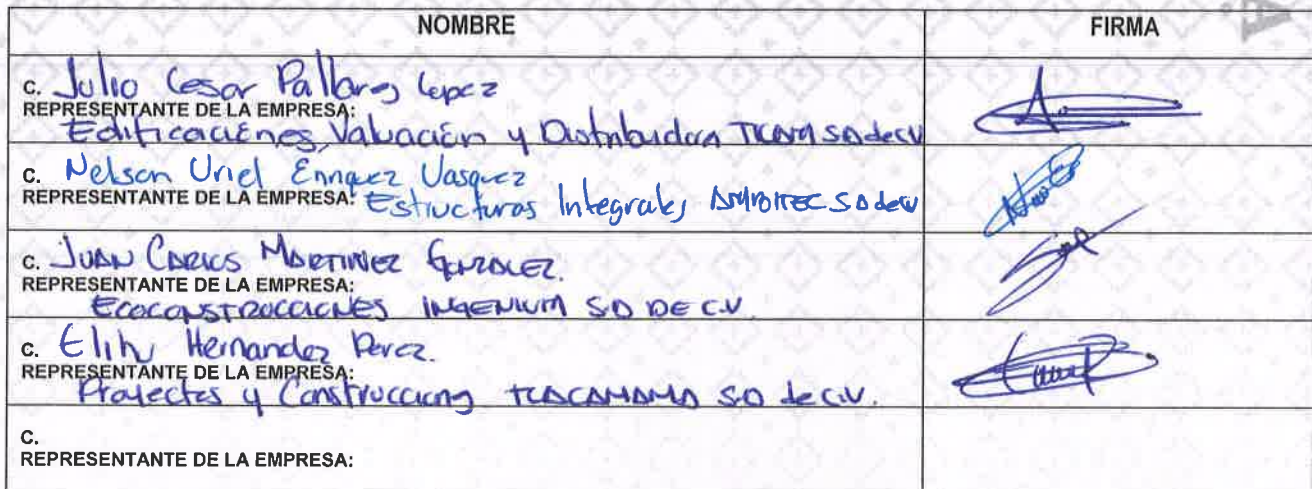 NOMBRE FIRMA
C. Julio Cesar Pallares Lopez
REPRESENTANTE DE LA EMPRESA:
Edificaciones, Valuación y Distribuidora SA de CV
C. Nelson Uriel Enriquez Vasquez
REPRESENTANTE DE LA EMPRESA: Estructuras Integrales SA de CV
C. JUAN CARLOS MARTINEZ GONZALEZ.
REPRESENTANTE DE LA EMPRESA:
ECOCONSTRUCCIONES INGENIUM SA DE C.V.
C. Elihu Hernandez Perez.
REPRESENTANTE DE LA EMPRESA:
Proyectos y Construcciones TLACAMAMA SA de C.V.
C.
REPRESENTANTE DE LA EMPRESA: